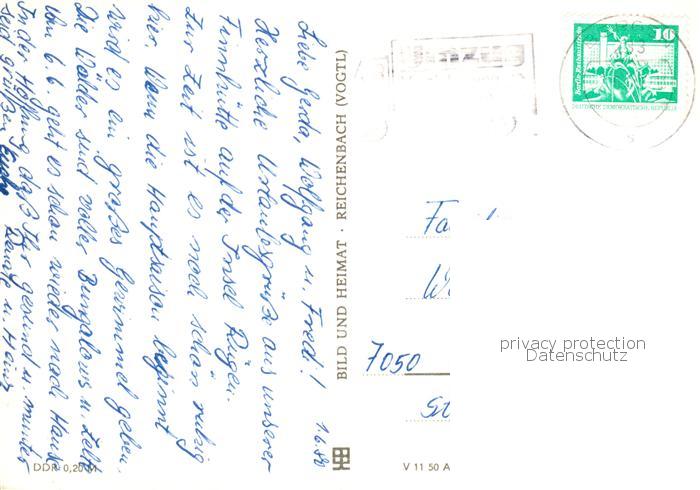 1.6.80
Liebe Gerda, Wolfgang u. Fredi!
Herzliche Urlaubsgrüße aus unserer
Finnhütte auf der Insel Rügen.
Zur Zeit ist es noch schön ruhig
hier. Wenn die Hauptsaison beginnt
wird es ein großes Gewimmel geben.
Die Wälder sind voller Bungalows u. Zelte
Am 6.6. geht es schon wieder nach Hause
In der Hoffnung daß Ihr gesund u. munter
seid grüßen Euch
u. Heinz
BILD UND HEIMAT · REICHENBACH (VOGTL)
DDR 0,20 M
V 11 50 A
10
Berlin-Rathausstraße
DEUTSCHE DEMOKRATISCHE REPUBLIK
Fa
W
7050
St
privacy protection
Datenschutz